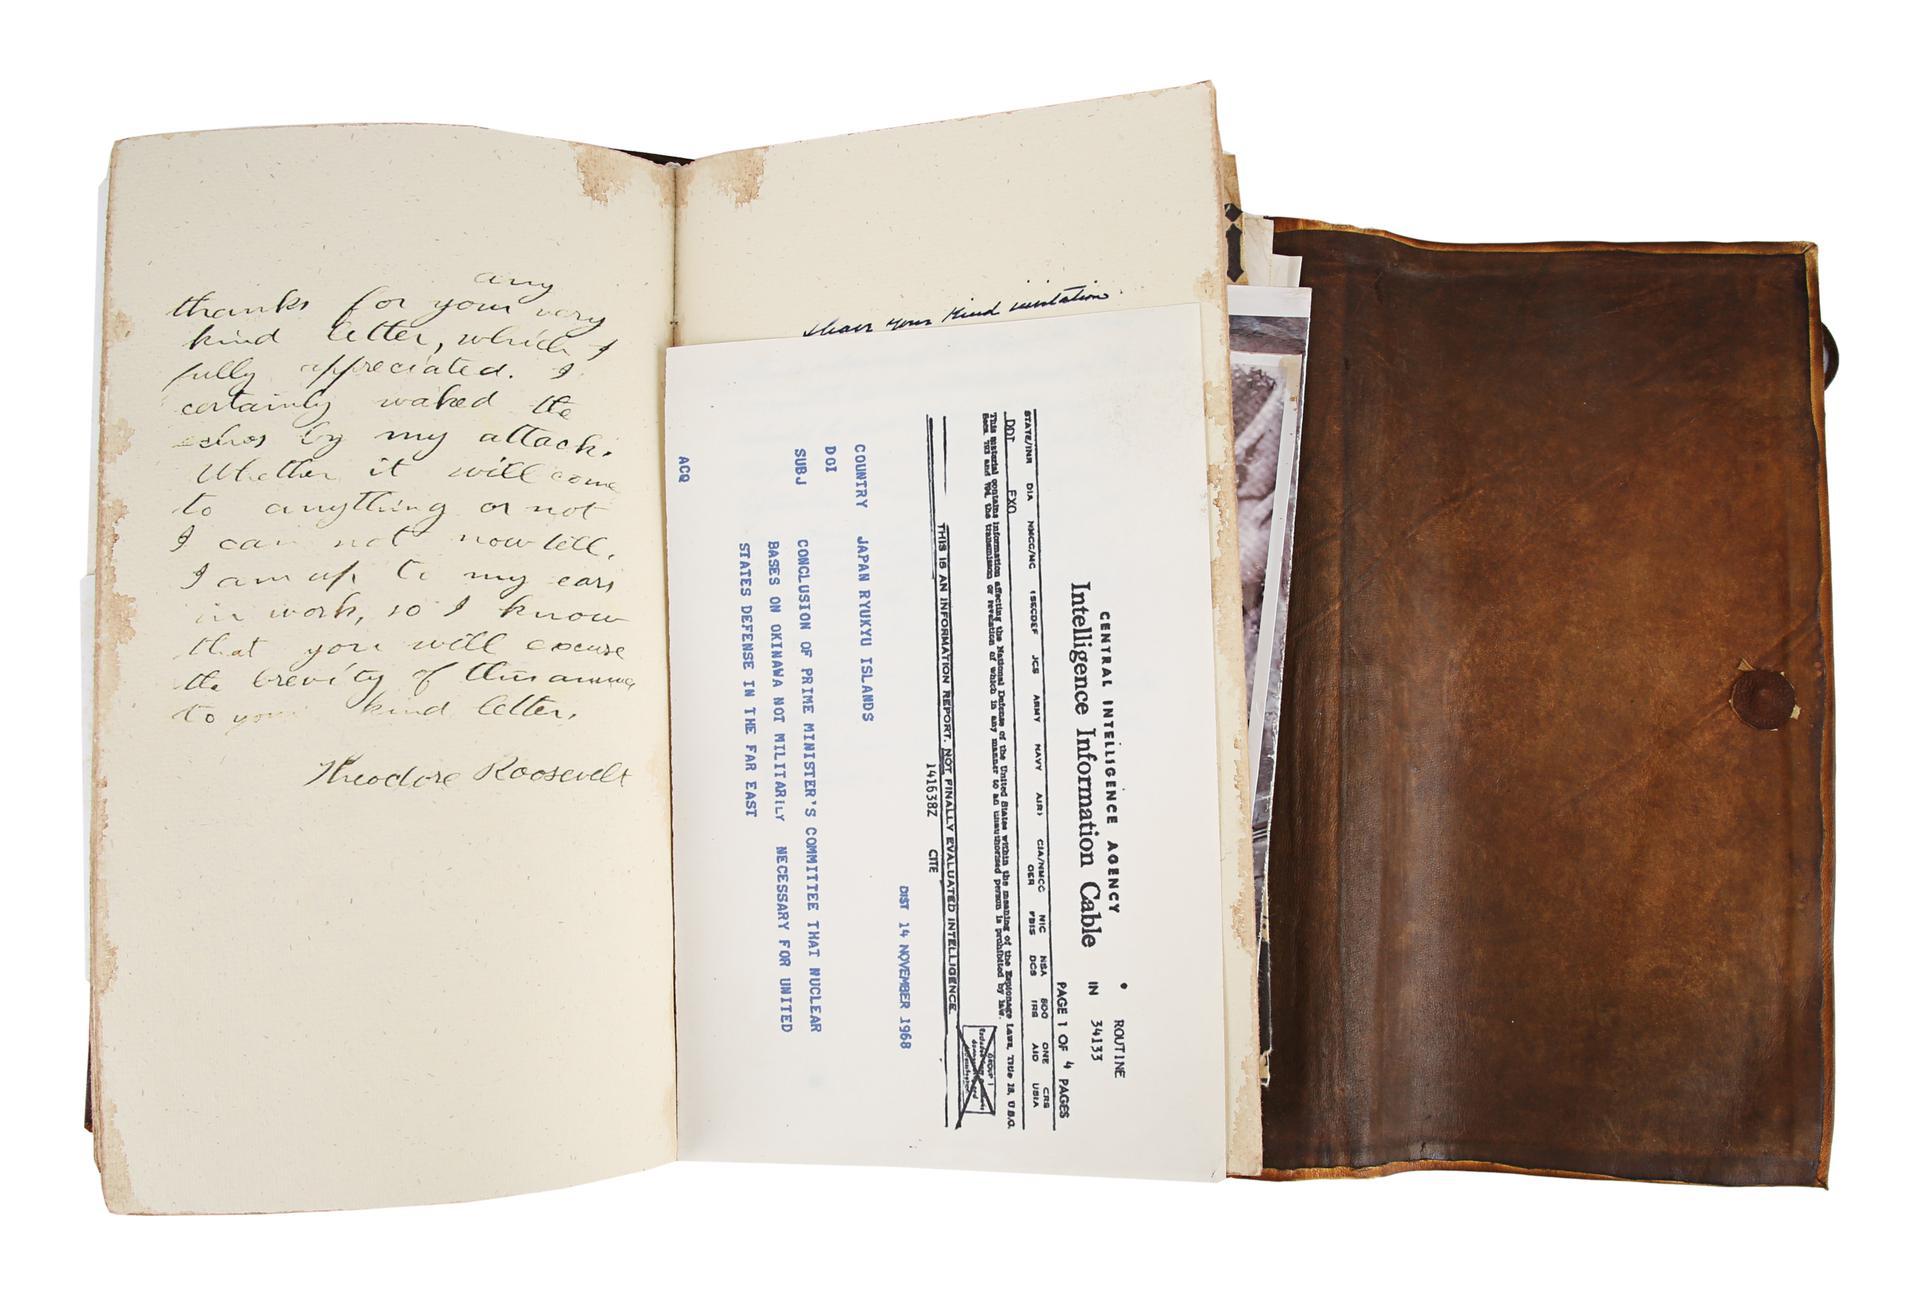 any
thanks for your very
kind letter, which I
fully appreciated. I
certainly waked the
echos by my attack.
Whether it will come
to anything or not
I can not now tell.
I am up to my ears
in work, so I know
that you will excuse
the brevity of this answer
to your kind letter.
Theodore Roosevelt
your kind invitation
CENTRAL INTELLIGENCE AGENCY
• ROUTINE
Intelligence Information Cable
IN 34133
PAGE 1 OF 4 PAGES
STATE/INR DIA NMCC/MC (SECDEF JCS ARMY NAVY AIR) CIA/NMCC NIC NSA SOO ONE CRS
OER FBIS DCS IRS AID USIA
DDI EXO
This material contains information affecting the National Defense of the United States within the meaning of the Espionage Laws, Title 18, U.S.C.
Secs. 793 and 794, the transmission or revelation of which in any manner to an unauthorized person is prohibited by law.
GROUP 1
THIS IS AN INFORMATION REPORT, NOT FINALLY EVALUATED INTELLIGENCE.
141638Z CITE
DIST 14 NOVEMBER 1968
COUNTRY JAPAN RYUKYU ISLANDS
DOI
SUBJ CONCLUSION OF PRIME MINISTER'S COMMITTEE THAT NUCLEAR
BASES ON OKINAWA NOT MILITARILY NECESSARY FOR UNITED
STATES DEFENSE IN THE FAR EAST
ACQ